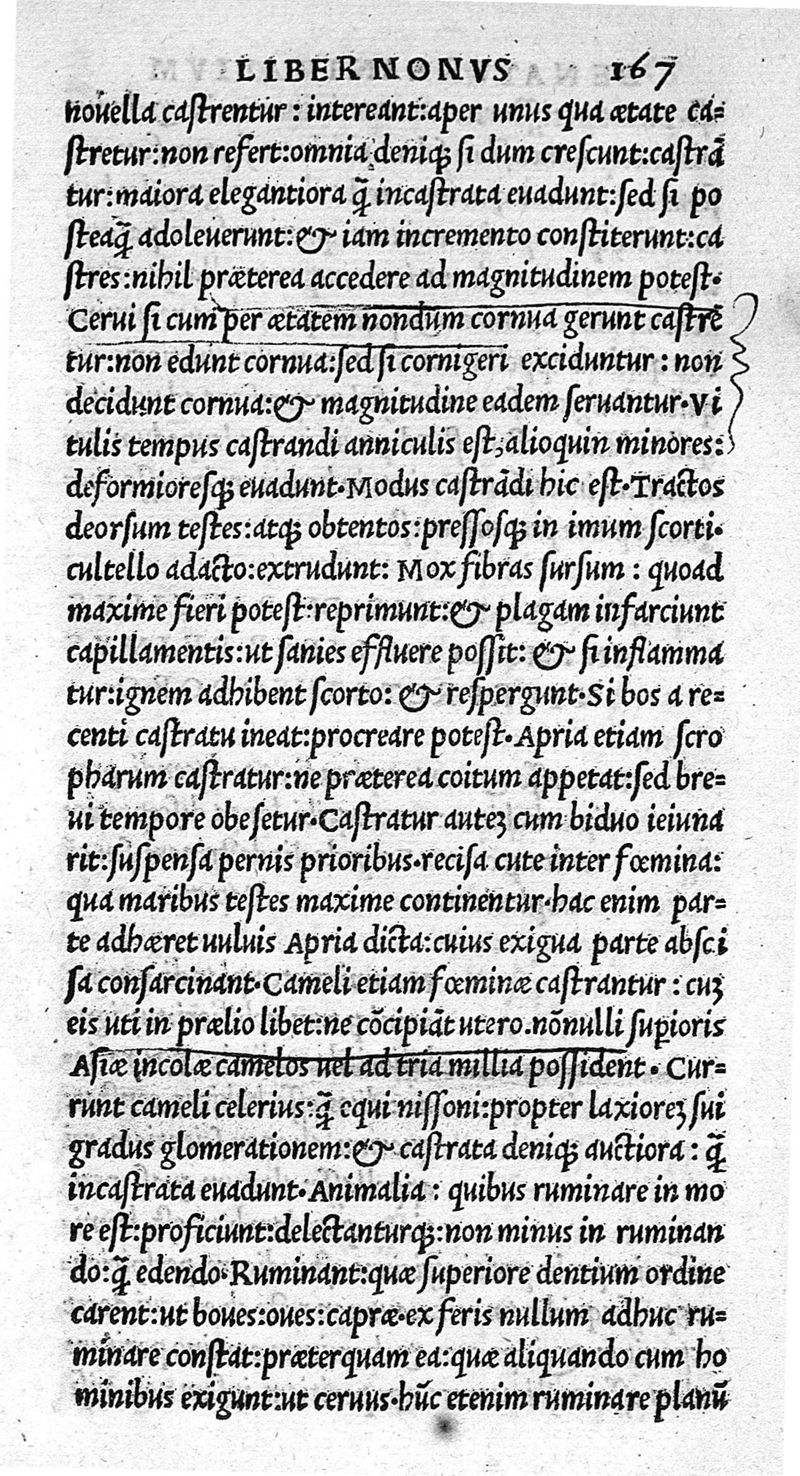 LIBER NONVS 167
nouella caſtrentur : intereant:aper unus qua ætate ca=
ſtretur:non refert:omnia deniqꝫ ſi dum creſcunt:caſtrā
tur:maiora elegantiora q̄ incaſtrata euadunt:ſed ſi po
ſteaq̄ adoleuerunt:& iam incremento conſtiterunt:ca
ſtres:nihil præterea accedere ad magnitudinem poteſt.
Cerui ſi cum per ætatem nondum cornua gerunt caſtrē
tur:non edunt cornua:ſed ſi cornigeri exciduntur : non
decidunt cornua:& magnitudine eadem ſeruantur.Vi
tulis tempus caſtrandi anniculis eſt,alioquin minores:
deformioreſqꝫ euadunt.Modus caſtrādi hic eſt.Tractos
deorſum teſtes:atqꝫ obtentos:preſſoſqꝫ in imum ſcorti.
cultello adacto:extrudunt: Mox fibras ſurſum : quoad
maxime fieri poteſt:reprimunt:& plagam infarciunt
capillamentis:ut ſanies effluere poſſit: & ſi inflamma
tur:ignem adhibent ſcorto: & reſpergunt.Si bos a re=
centi caſtratu ineat:procreare poteſt.Apria etiam ſcro
pharum caſtratur:ne præterea coitum appetat:ſed bre=
ui tempore obeſetur.Caſtratur auteꝫ cum biduo ieiuna
rit:ſuſpenſa pernis prioribus.reciſa cute inter fœmina:
qua maribus teſtes maxime continentur.hac enim par=
te adhæret uuluis Apria dicta:cuius exigua parte abſci
ſa conſarcinant.Cameli etiam fœminæ caſtrantur : cuꝫ
eis uti in prælio libet:ne cōcipiāt utero.nōnulli ſuperioris
Aſiæ incolæ camelos uel ad tria millia poſſident . Cur=
runt cameli celerius:q̄ equi niſſoni:propter laxioreꝫ ſui
gradus glomerationem:& caſtrata deniqꝫ auctiora : q̄
incaſtrata euadunt.Animalia : quibus ruminare in mo
re eſt:proficiunt:delectanturqꝫ:non minus in ruminan
do:q̄ edendo.Ruminant:quæ ſuperiore dentium ordine
carent:ut boues:oues:capræ.ex feris nullum adhuc ru=
minare conſtat:præterquam ea:quæ aliquando cum ho
minibus exigunt:ut ceruus.hūc etenim ruminare planū